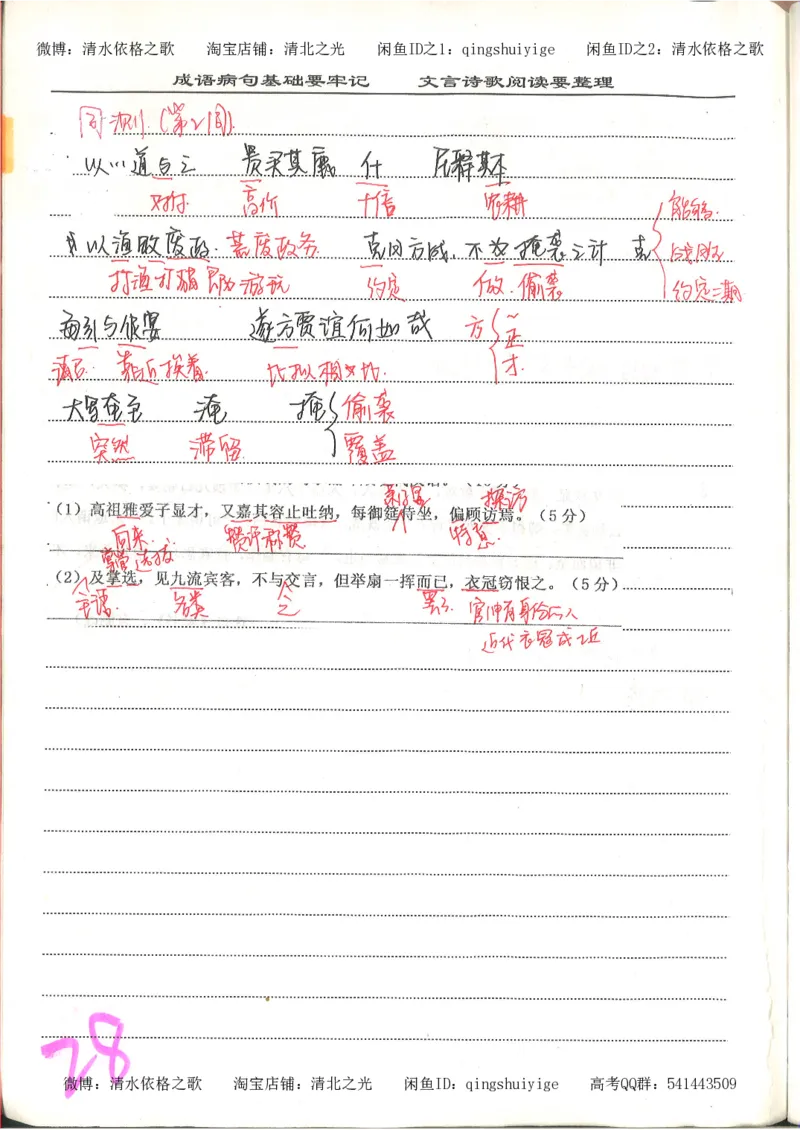 微博：清水依格之歌 淘宝店铺：清北之光 闲鱼ID之1：qingshuiyige 闲鱼ID之2：清水依格之歌
成语病句基础要牢记 文言诗歌阅读要整理
周测（第21周）
以 道与之 贵买其 什 释其本
对付 高价 十倍 农耕 能够
以渔畋废政 荒废政务 克日方战，不为掩袭之计 克 战胜
打渔打猎 即游玩 约定 做 偷袭 约定日期
引与俱宴 遂方贾谊何如哉 方 正
靠近挨着 比拟相比 才
大军奄至 淹 掩 偷袭
突然 滞留 覆盖
探访
（1）高祖雅爱子显才，又嘉其容止吐纳，每御筵侍坐，偏顾访焉。（5分）
向来 赞许称赞 特意
掌管选拔
（2）及掌选，见九流宾客，不与交言，但举扇一挥而已，衣冠窃恨之。（5分）
主语 各类 之 罢了 官绅有身份的人
近代衣冠或之近
28
微博：清水依格之歌 淘宝店铺：清北之光 闲鱼ID：qingshuiyige 高考QQ群：541443509